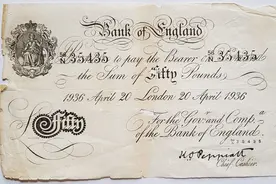 Bank of England
N 35435 to pay the Bearer N 35435
the Sum of Fifty Pounds
1936 April 20 London 20 April 1936
For the Gov.r and Comp.a
Fifty of the Bank of England.
K O Peppiatt
Chief Cashier.